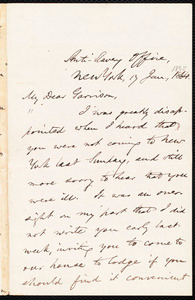 Anti-Slavery Office,
New York, 17 Jan.,
My Dear Garrison,
I was greatly disap-
pointed when I heard that
you were not coming to New
York last Sunday, and still
more sorry to hear that you
were ill. It was an over-
sight on my part that I did
not write you early last
week, inviting you to come to
our house to lodge if you
should find it convenient